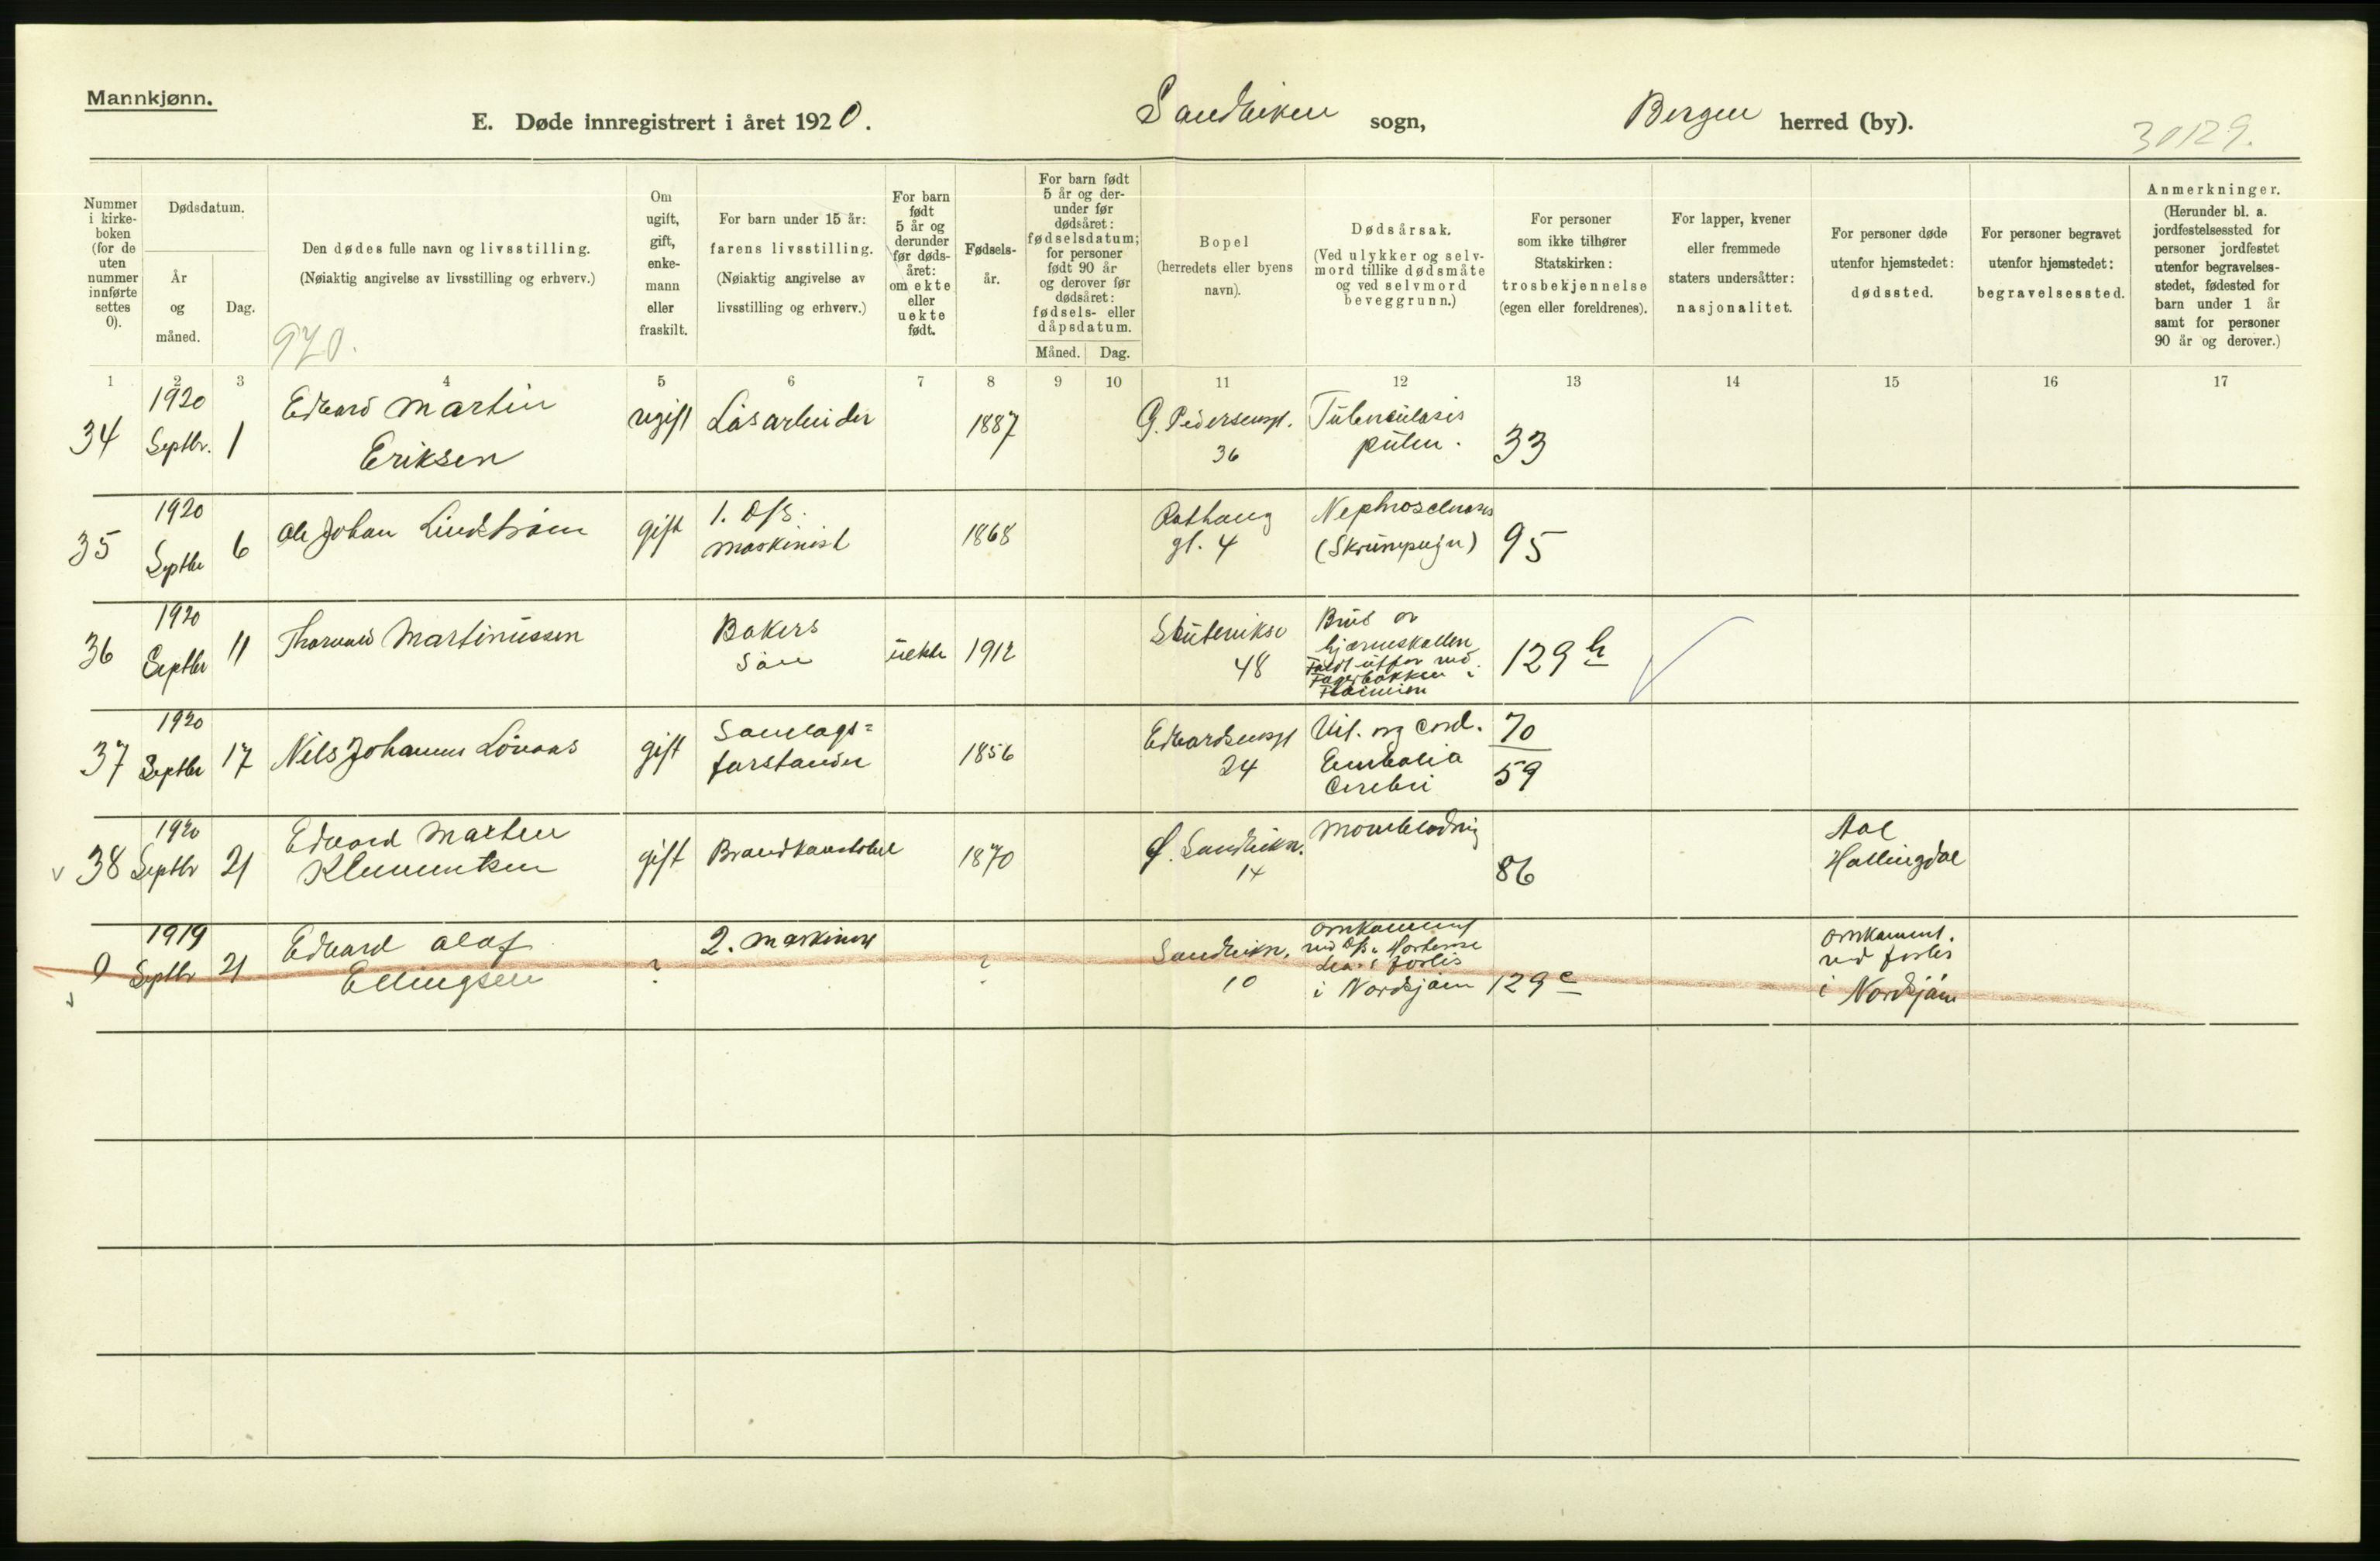 Mannkjønn.
E. Døde innregistrert i året 1920. Sandviken sogn, Bergen herred (by).
30129.
Nummer
i kirke-
boken
(for de
uten
nummer
innførte
settes
0).
Dødsdatum.
År
og
måned.
Dag.
Den dødes fulle navn og livsstilling.
(Nøiaktig angivelse av livsstilling og erhverv.)
970.
Om
ugift,
gift,
enke-
mann
eller
fraskilt.
For barn under 15 år:
farens livsstilling.
(Nøiaktig angivelse av
livsstilling og erhverv.)
For barn
født
5 år og
derunder
før døds-
året:
om ekte
eller
uekte
født.
Fødsels-
år.
For barn født
5 år og der-
under før
dødsåret:
fødselsdatum;
for personer
født 90 år
og derover før
dødsåret:
fødsels- eller
dåpsdatum.
Måned. Dag.
Bopel
(herredets eller byens
navn).
Dødsårsak.
(Ved ulykker og selv-
mord tillike dødsmåte
og ved selvmord
beveggrunn.)
For personer
som ikke tilhører
Statskirken:
trosbekjennelse
(egen eller foreldrenes).
For lapper, kvener
eller fremmede
staters undersåtter:
nasjonalitet.
For personer døde
utenfor hjemstedet:
dødssted.
For personer begravet
utenfor hjemstedet:
begravelsessted.
Anmerkninger.
(Herunder bl. a.
jordfestelsessted for
personer jordfestet
utenfor begravelses-
stedet, fødested for
barn under 1 år
samt for personer
90 år og derover.)
1 2 3 4 5 6 7 8 9 10 11 12 13 14 15 16 17
34
1920
Septbr. 1
Edvard Martin
Eriksen
ugift
Løsarbeider
1887
G. Pedersensgt.
36
Tuberculosis
pulm.
33
35
1920
Septbr 6
Ole Johan Lindstrøm
gift
1. D/S.
maskinist
1868
Rothaug
gt. 4
Nephrosclerosis
(Skrumpnyre)
95
36
1920
Septbr 11
Thorvald Martinussen
Bakers
søn
uekte
1912
Skuteviksv
48
Brud av
hjerneskallen
Faldt utfor ved
i
129 h
37
1920
Septbr 17
Nils Johannes Lönaas
gift
Samlags=
forstander
1856
Edvardsensgt
24
Vit. org cord.
Embolia
Cerebri
70
59
38
1920
Septbr 21
Edvard Martin
Klementsen
gift
Brandkonstabel
1870
Ø. Sandvikv.
14
86
Aal
Hallingdal
0
1919
Septbr 21
Edvard Olaf
Ellingsen
?
2. maskinist
?
Sandvikv.
10
omkommet
ved D/S.
forlis
i Nordsjøen
129 c
omkommet.
ved forlis
i Nordsjøen